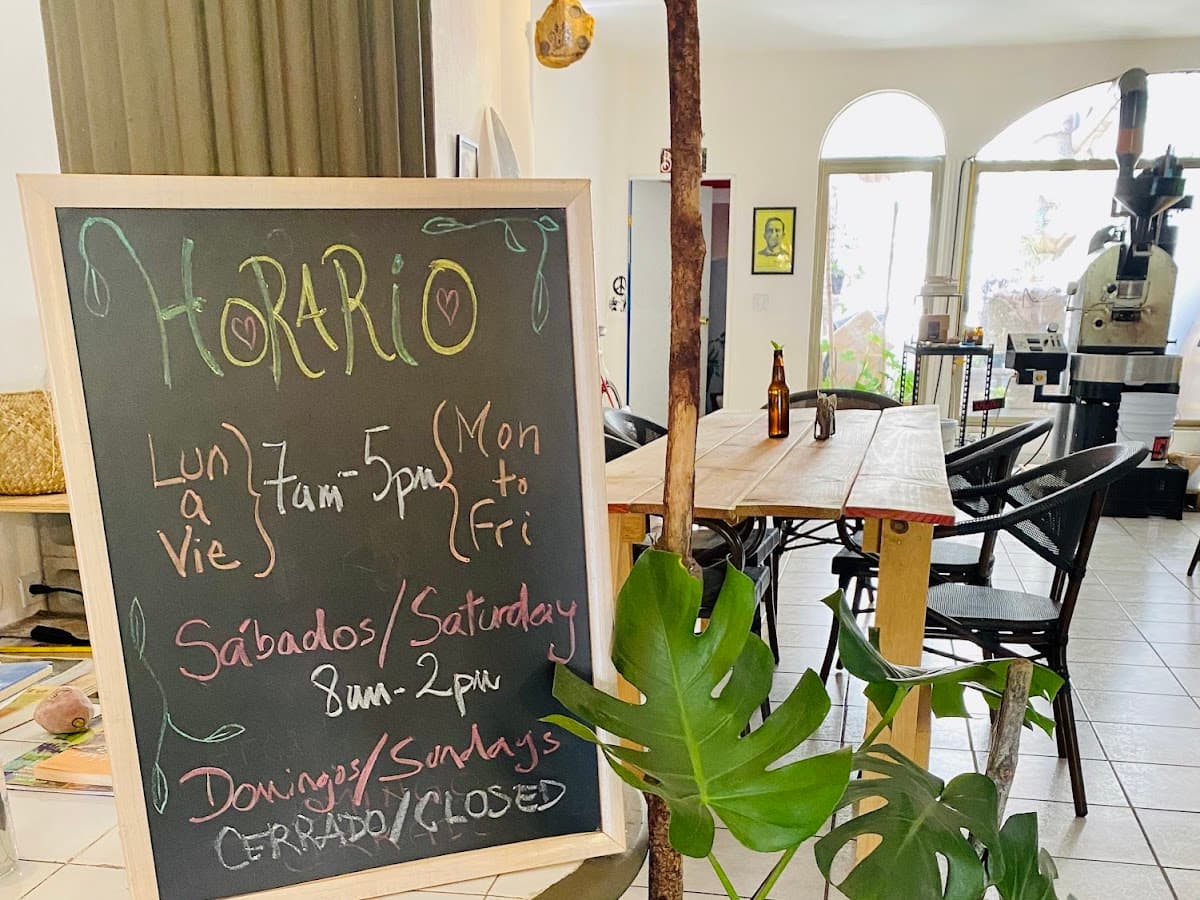 HORARiO
Lun
a
Vie
7am-5pm
Mon
to
Fri
Sábados/Saturday
8am-2pm
Domingos/Sundays
CERRADO/CLOSED